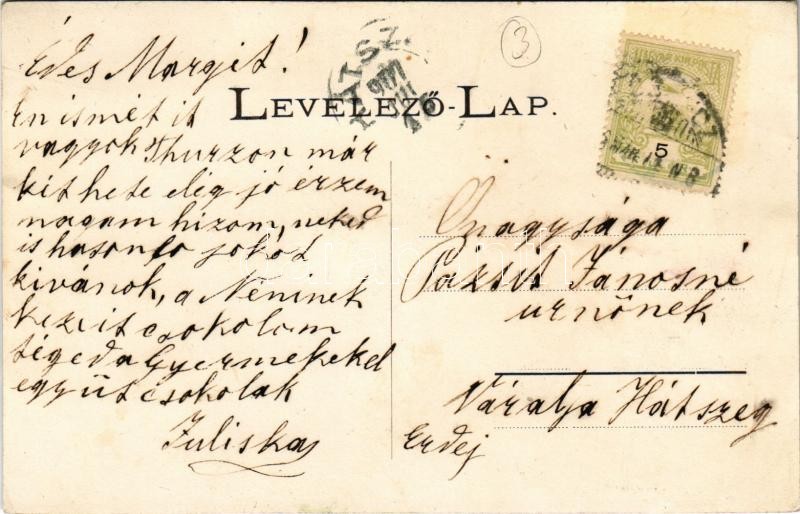 Édes Margit!
én ismét it
vagyok Thurzon már
két hete elég jó érzem
magam hizom, neked
is hasonlo jokat
kivánok, a Néninek
kezeit csokolom
téged a Gyermekekel
együt csokolak
Juliska
3
LEVELEZŐ-LAP.
5
Őnagysága
Pázsit Jánosné
urnőnek
Váralja Hátszeg
Erdej